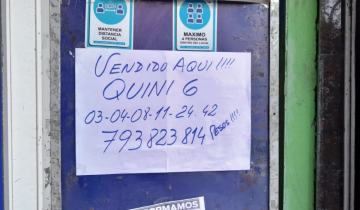 MANTENER
DISTANCIA
SOCIAL
MAXIMO
4 PERSONAS
VENDIDO AQUI !!!!
QUINI 6
03-04-08-11-24-42
793823814 PESOS !!!!